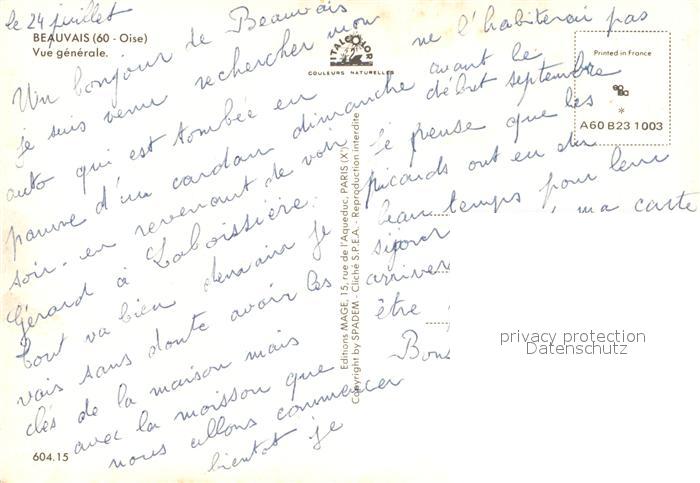 le 24 juillet
BEAUVAIS (60 - Oise)
Vue générale.
Un bonjour de Beauvais
je suis venu rechercher mon
auto qui est tombée en
panne d'un cardan dimanche
soir en revenant de voir
Gérard à Laboissière.
tout va bien demain je
vais sans doute avoir les
clés de la maison mais
avec la moisson que
nous allons commencer
bientot je
604.15
Editions MAGE, 15, rue de l'Aqueduc, PARIS (X')
Copyright by SPADEM - Cliché S.P.E.A. - Reproduction interdite
ITALCOLOR
COULEURS NATURELLES
ne l'habiterai pas
avant le
début septembre
je pense que les
picards ont eu du
beau temps pour leur
séjour ma carte
arriver
être
Bon
Printed in France
A60 B23 1003
privacy protection
Datenschutz